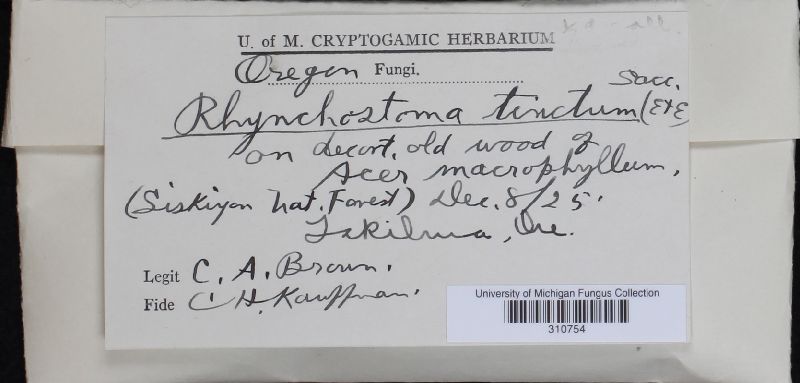 U. of M. CRYPTOGAMIC HERBARIUM
Oregon Fungi.
Sacc.
Rhynchostoma tinctum (E&E)
on decort. old wood of
Acer macrophyllum,
(Siskiyou Nat. Forest) Dec. 8/25.
Takilma, Ore.
Legit C. A. Brown.
Fide C H. Kauffman.
University of Michigan Fungus Collection
310754